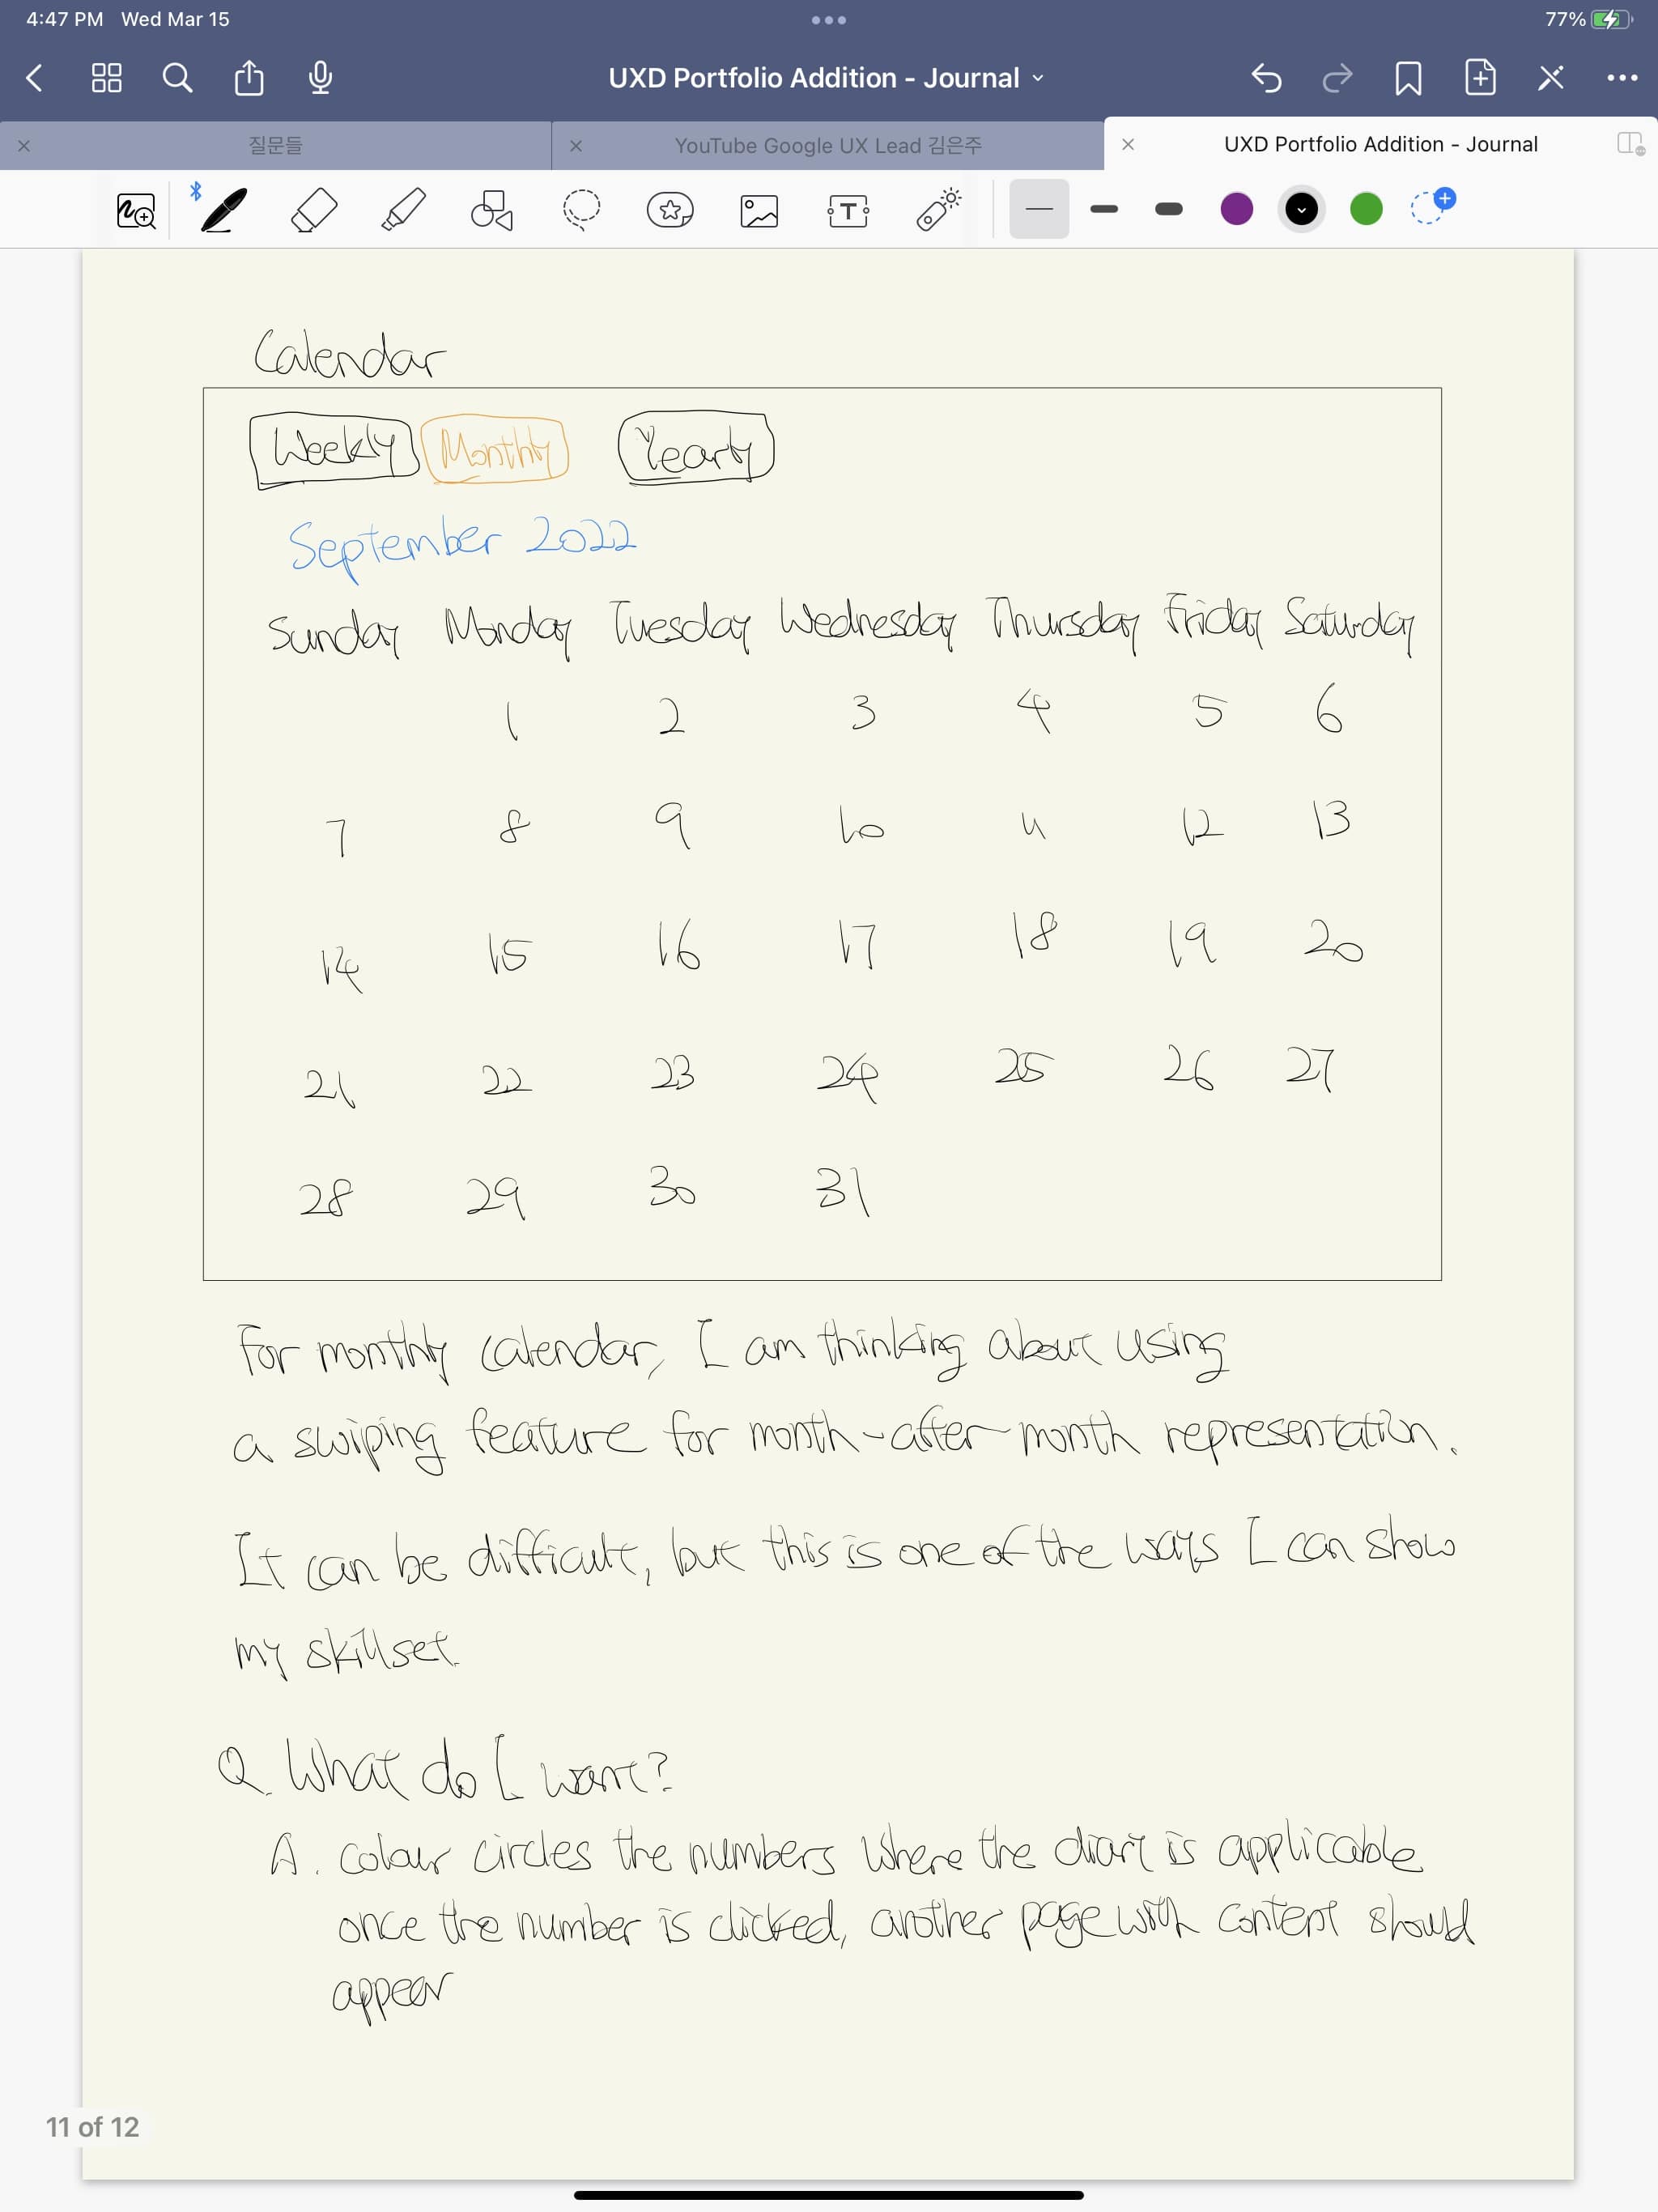 4:47 PM Wed Mar 15
77%
UXD Portfolio Addition - Journal
질문들
YouTube Google UX Lead 김은주
UXD Portfolio Addition - Journal
T
Calendar
Weekly Monthly Yearly
September 2022
Sunday Monday Tuesday Wednesday Thursday Friday Saturday
1 2 3 4 5 6
7 8 9 10 11 12 13
14 15 16 17 18 19 20
21 22 23 24 25 26 27
28 29 30 31
For monthly calendar, I am thinking about using
a swiping feature for month-after-month representation.
It can be difficult, but this is one of the ways I can show
my skillset.
Q. What do I want?
A. colour circles the numbers where the diary is applicable
once the number is clicked, another page with content should
appear
11 of 12